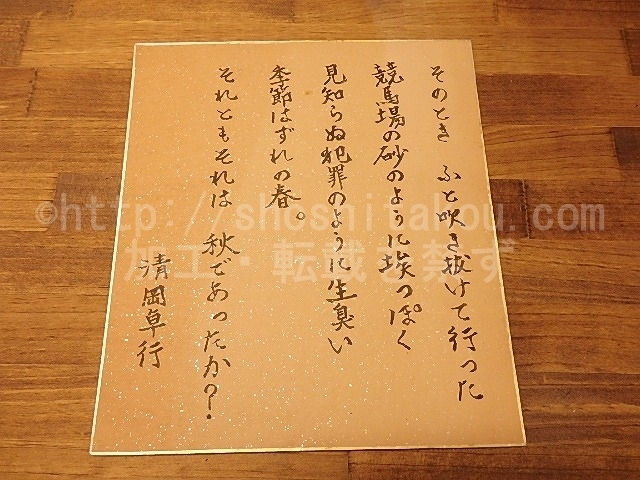 そのとき　ふと吹き抜けて行った
競馬場の砂のように埃っぽく
見知らぬ犯罪のように生臭い
季節はずれの春。
それともそれは　秋であったか?
清岡卓行
©http://shoshitakou.com
加工・転載を禁ず